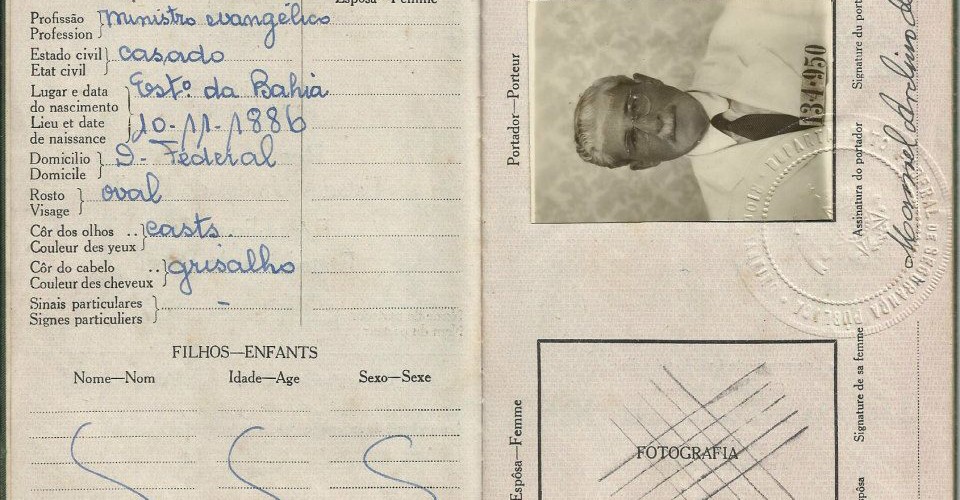 Espôsa—Femme
Profissão
Profession
Ministro evangélico
Estado civil
Etat civil
casado
Lugar e data
do nascimento
Lieu et date
de naissance
Estº. da Bahia
10-11-1886
Domicilio
Domicile
D. Federal
Rosto
Visage
oval
Côr dos olhos ..
Couleur des yeux
casts.
Côr do cabelo ..
Couleur des cheveux
grisalho
Sinais particulares
Signes particuliers
-
FILHOS—ENFANTS
Nome—Nom Idade—Age Sexo—Sexe
Portador—Porteur
134·950
Assinatura do portador Signature du port
Manoel Avelino de
Espôsa—Femme
FOTOGRAFIA
Signature de sa femme
pôsa